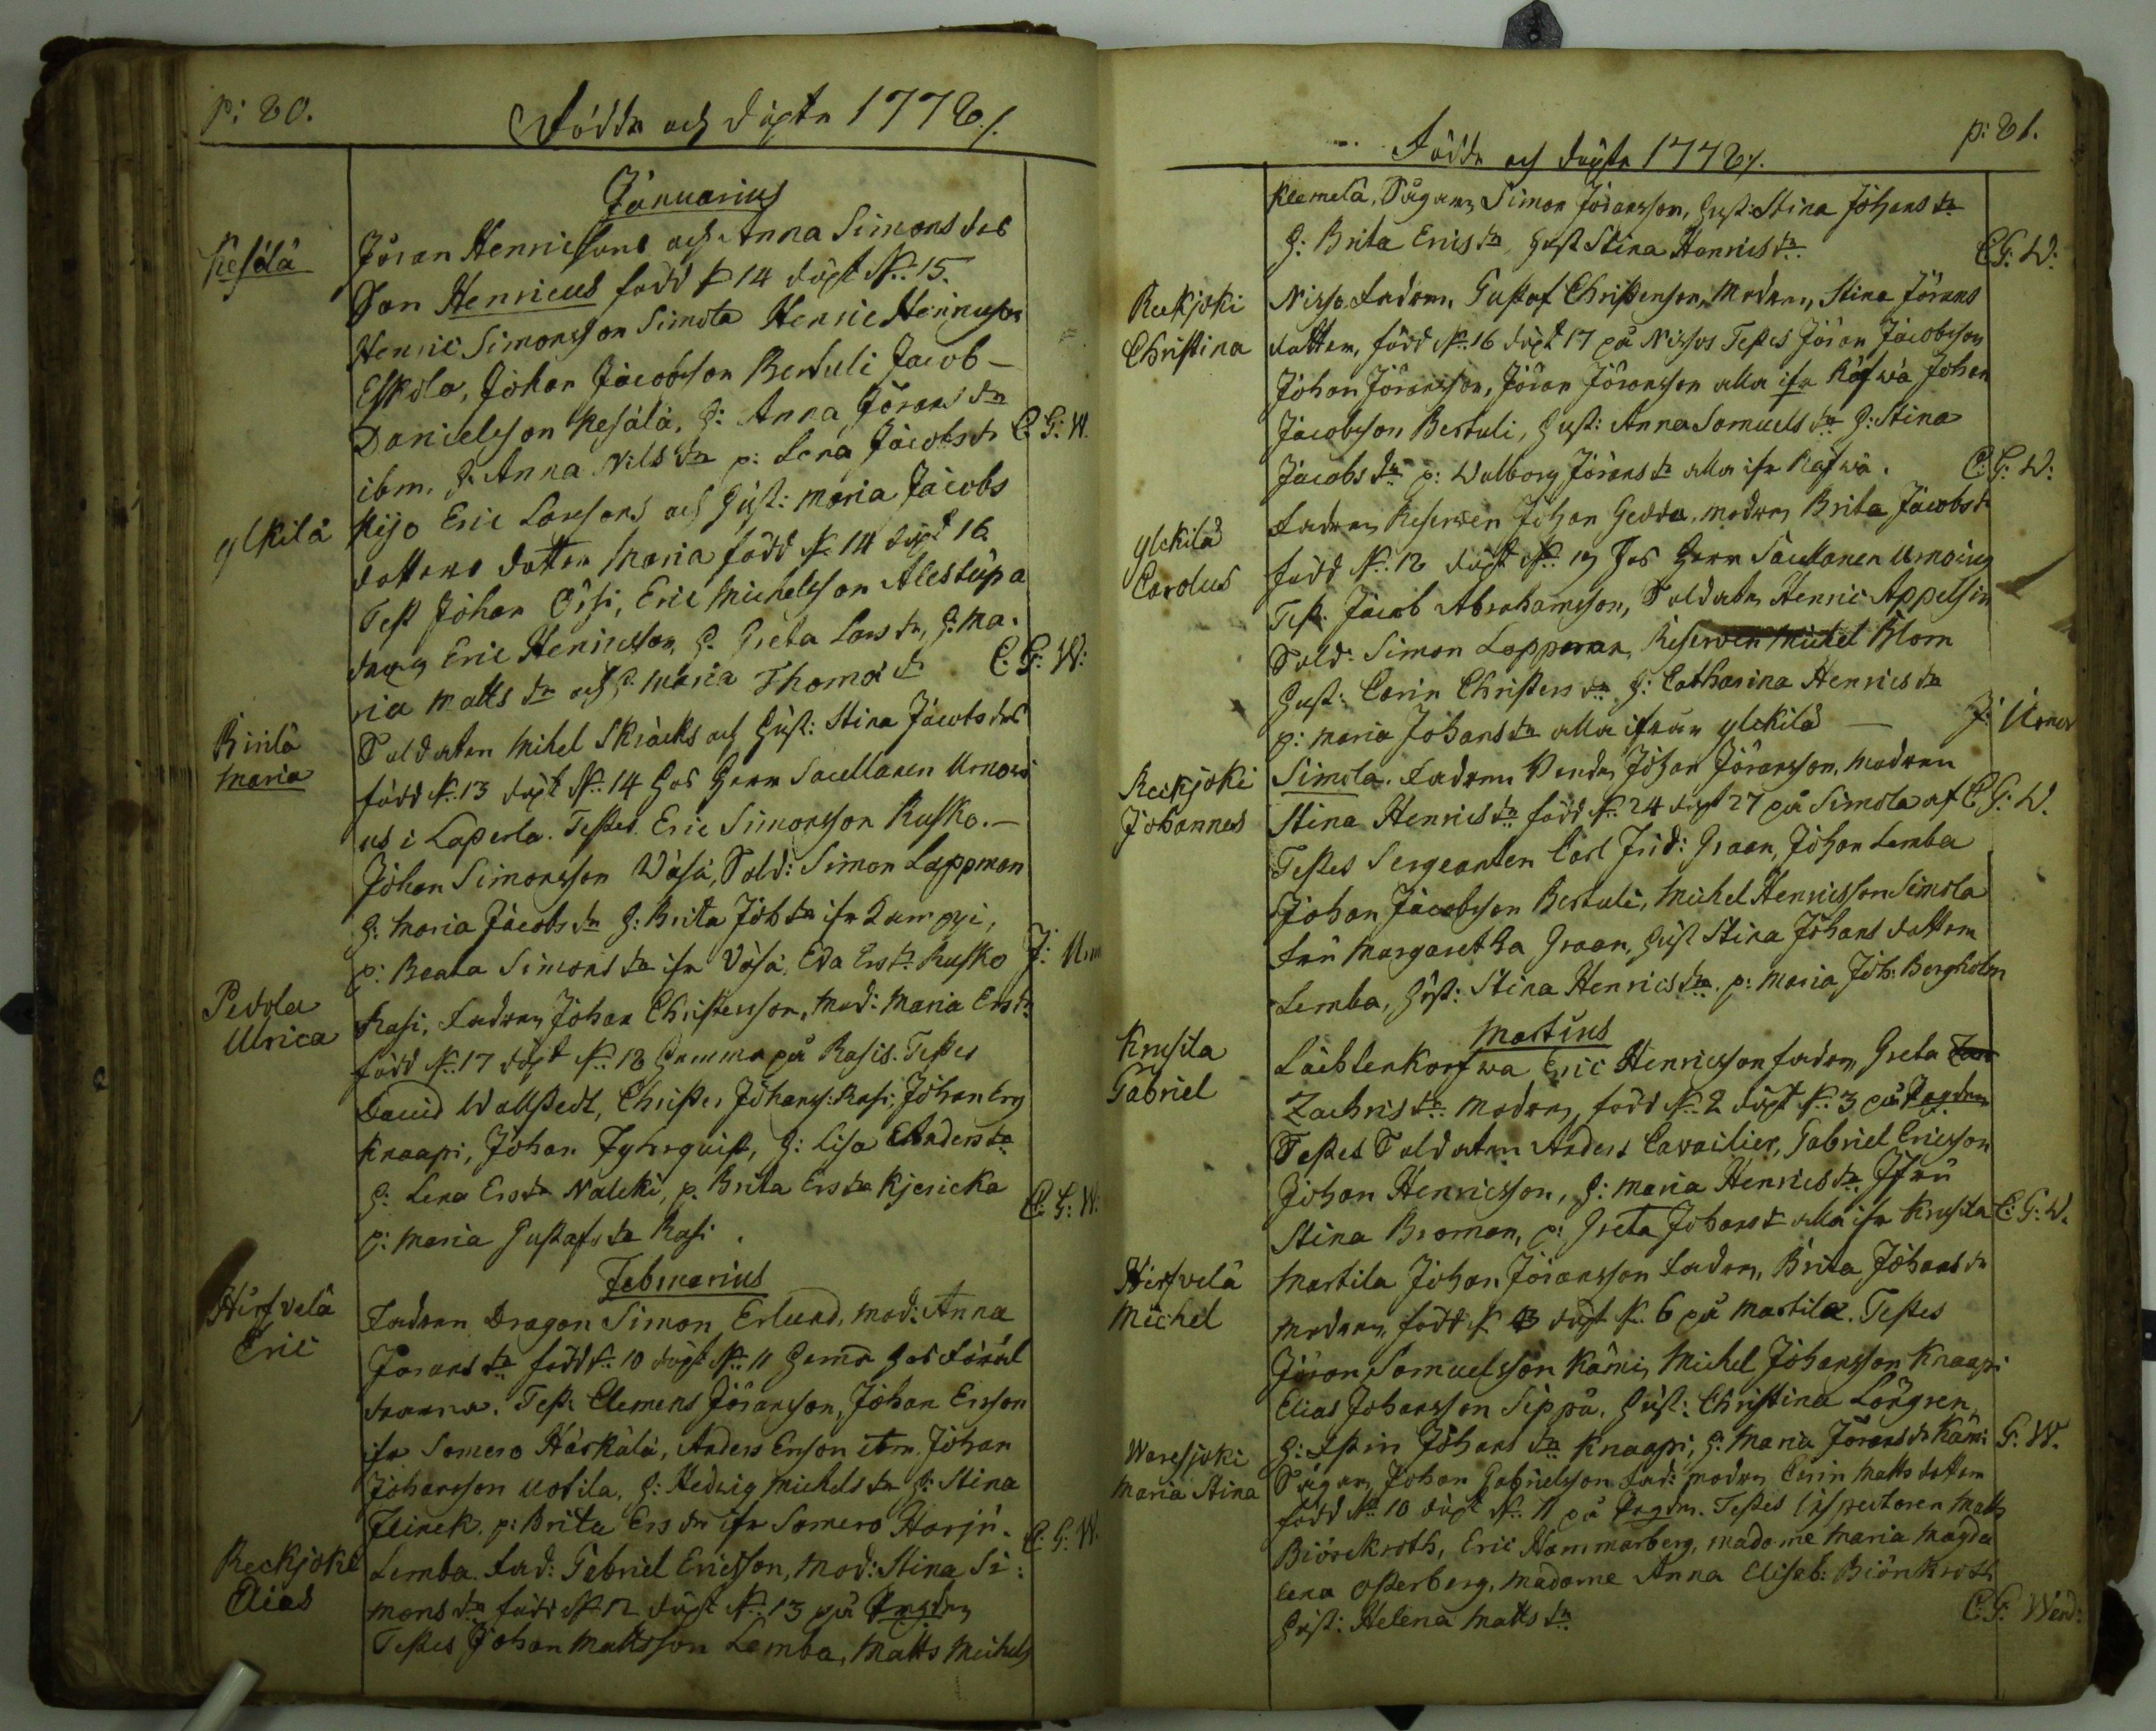 p: 80.
Födde och döpte 1778/.
Januarius
Kesälä
Jöran Henricssons och Anna Simons drs
Son Henricus född d 14 döpt d. 15.
Henric Simonsson Simola Henric Henricsson
Eskola, Johan Jacobsson Bertuli Jacob-
Danielsson Kesälä, H: Anna Jörans dr
ibm. H: Anna Nils dr p: Lena Jacobs dr C: G: W.
ylkilä
Kijo Eric Larssons och Hust: Maria Jacobs
dotters dotter Maria född d. 14 döpt 16
Test Johan Össi, Eric Michelsson Alestupa
dräng Eric Henricsson, H. Greta Lars dr, H: Ma-
ria Matts dr och P. Maria Thomæ dr C: G: W:
Maria
Soldaten Mihel Skräcks och Hust: Stina Jacobs drs
född d. 13 döpt d. 14 hos Herr Sacellanen Urnovi
us i Laperla. Testes Eric Simonsson Rusko.-
Johan Simonsson Wäsä, Sold: Simon Lappman
H: Maria Jacobs dr H: Brita Joh dr ifr
p: Beata Simons dr ifr Väsä, Eva Ers dr Rusko J: Urn
Pedola
Ulrica
Rasi, Fadren Johan Christersson, Mod: Maria Ers dr
född d. 17 döpt d. 18 hemma på Rasis. Testes
David Wallstedt, Christer Johanss: Rasi, Johan Ers
Knaapi, Johan Fyhrquist, H: Lisa Anders dr
H: Lena Ers dr Naleki, p. Brita Ers dr Kjericka
p: Maria Gustafs dr Rasi C: G: W.
Februarius
Hirfvelä
Eric
Fadren Dragon Simon Erlund, mod: Anna
Jörans dr född d. 10 döpt d. 11 hema hos föräl
drarna. Test: Clemens Jöransson, Johan Ersson
ifr Somero Härkälä, Anders Ersson ibm. Johan
Johansson Uotila, H: Hedvig Michels dr H: Stina
Flinck. p: Brita Ers dr ifr Somero Harju. C: G: W.
Reckjoki
Elias
Lemba. Fad: Gabriel Ericsson, Mod: Stina Si:
mons dr född d. 12 döpt d. 13 på Prgdn
Testes Johan Mattsson Lemba, Matts Michels
p: 81.
Födde och döpte 1778/.
Klemelä, Sågaren Simon Jöransson, Hust: Stina Johans dr
H: Brita Erics dr Hust Stina Henrics dr C: G: W:
Reckjoki
Christina
Nisso Fadren, Gustaf Christersson, Modren, Stina Jörans
dotter, född d. 16 döpt 17 på Nissos Testes Jöran Jacobsson
Johan Jöransson, Jöran Jöransson alla ifr Räfwä Johan
Jacobsson Bertuli, Hust: Anna Samuels dr H: Stina
Jacobs dr p: Walborg Jörans dr alla ifr Räfwä. C: G: W:
ylckilä
Carolus
Fadren Reserven Johan Gedda, modren Brita Jacobs dr
född d. 18 döpt d. 19 hos Herr Sacellanen Urnovius
Test: Jacob Abrahamsson, Soldaten Henric Appelsin
Sold: Simon Lappman, Reserven Mickel Blom
Hust: Carin Christers dr H: Catharina Henrics dr
p: Maria Johans dr alla ifrån ylckilä — J: Urnov
Reckjoki
Johannes
Simola. Fadren Bonden Johan Jöransson, Modren
Stina Henrics dr född d. 24 döpt 27 på Simola af C G: W.
Testes Sergeanten Carl Frid: Graan, Johan Lemba
Johan Jacobsson Bertuli, Michel Henricsson Simola
Fru Margaretha Graan, Hust Stina Johans dotter
Lemba, Hust: Stina Henrics dr. p: Maria Joh: Bergholm
Martius
Krusila
Gabriel
Lächtenkorfwa Eric Henricsson fadren, Greta
Zachris dr Modren, född d. 2 döpt d. 3 på Prgdn
Testes Soldaten Anders Cavailier, Gabriel Ericsson
Johan Henricsson, H: Maria Henrics dr Jfru
Stina Broman, p: Greta Johans dr alla ifr Krusila C: G: W.
Hirfvelä
Michel
Martila Johan Jöransson Fadren, Brita Johans dr
Modren, född d. 3 döpt d. 6 på Martila. Testes
Jöran Samuelsson Kämi, Michel Johansson Knaapi
Elias Johansson Sippä, Hust: Christina Löngren,
H: Johans dr Knaapi, H: Maria Jörans dr Kämi G: W.
Waresjoki
Maria Stina
Sågaren Johan Gabrielsson Fad: modren Carin Matts dotter
född d. 10 döpt d. 11 på Prgdn. Testes Inspectoren Matts
Biörckroth, Eric Hammarberg, madame Maria Magda
lena Österberg, Madame Anna Elisab: Biörckroth
Hust: Helena Matts dr C: G: Wend: